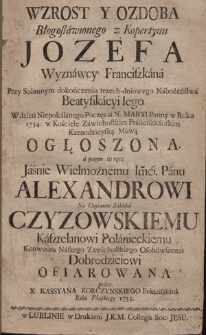 WZROST Y OZDOBA
Błogosłáwionego z Kopertynu
JOZEFA
Wyznáwcy Franciszkáná
Przy Solennym dokończeniu trzech-dniowego Nabożeństwá
Beatyfikácyi Iego
W dzień Niepokalánego Poczęcia N. MARYI Panny w Roku
1754. w Kościele Zawichostskim Fránciszkáńskim
Káznodzieyską Mową
OGŁOSZONA,
á potym w ręce
Jáśnie Wielmożnemu Imći Pánu
ALEXANDROWI
CZYZOWSKIEMU
Kásztelanowi Połánieckiemu
Konwentu Nászego Zawichostskiego Osobliwszemu
Dobrodzieiowi
OFIAROWANA
przez
X. KASSYANA KORCZYNSKIEGO Fránciszkáná
Roku Páńskiego 1755.
w LUBLINIE w Drukárni J.K.M. Collegii Soc: JESU.